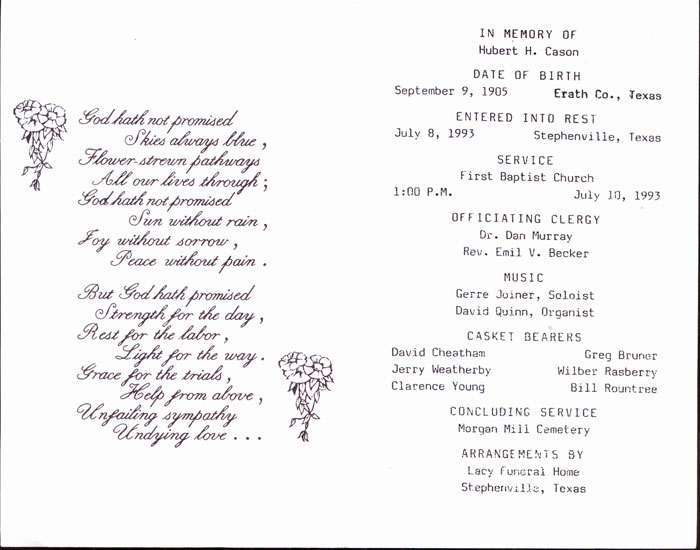 God hath not promised
Skies always blue,
Flower-strewn pathways
All our lives through;
God hath not promised
Sun without rain,
Joy without sorrow,
Peace without pain.
But God hath promised
Strength for the day,
Rest for the labor,
Light for the way.
Grace for the trials,
Help from above,
Unfailing sympathy
Undying love...
IN MEMORY OF
Hubert H. Cason
DATE OF BIRTH
September 9, 1905 Erath Co., Texas
ENTERED INTO REST
July 8, 1993 Stephenville, Texas
SERVICE
First Baptist Church
1:00 P.M. July 10, 1993
OFFICIATING CLERGY
Dr. Dan Murray
Rev. Emil V. Becker
MUSIC
Gerre Joiner, Soloist
David Quinn, Organist
CASKET BEARERS
David Cheatham Greg Bruner
Jerry Weatherby Wilber Rasberry
Clarence Young Bill Rountree
CONCLUDING SERVICE
Morgan Mill Cemetery
ARRANGEMENTS BY
Lacy Funeral Home
Stephenville, Texas